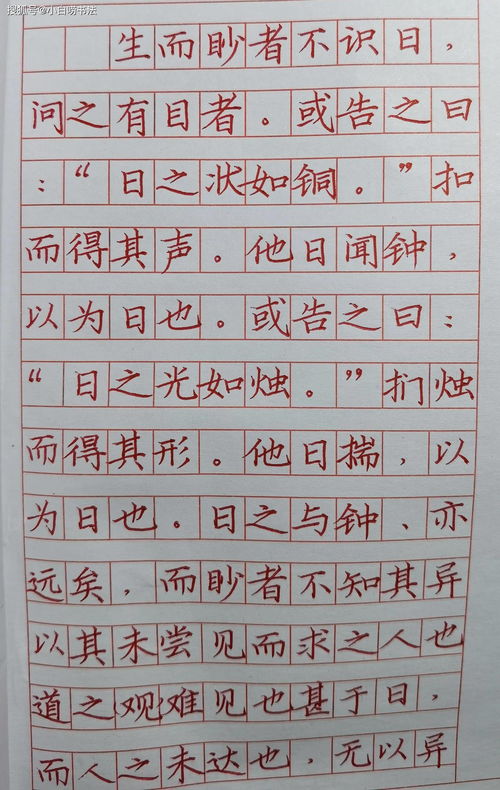 搜狐号@小白唠书法
生而眇者不识日，
问之有目者。或告之曰
：“日之状如铜。”扣
而得其声。他日闻钟，
以为日也。或告之曰：
“日之光如烛。”扪烛
而得其形。他日揣，以
为日也。日之与钟、亦
远矣，而眇者不知其异
以其未尝见而求之人也
道之观难见也甚于日，
而人之未达也，无以异